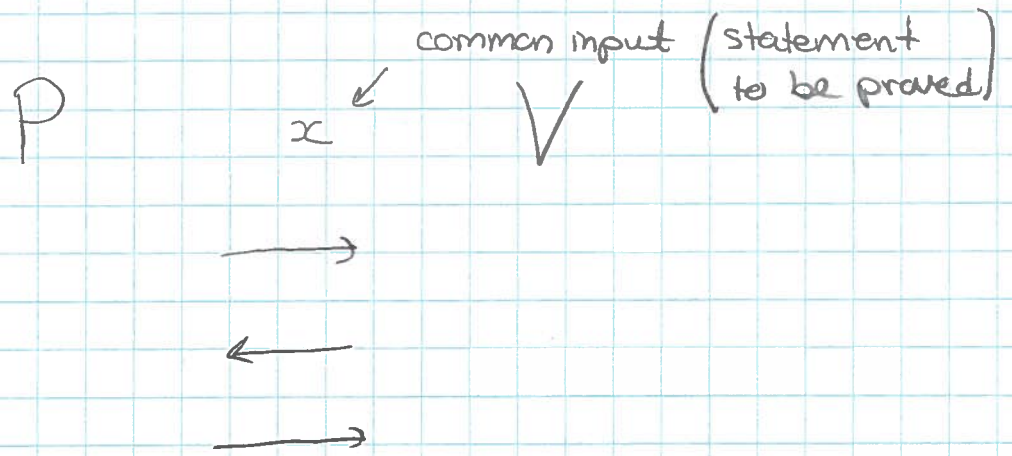 common input (statement
to be proved)
P x V